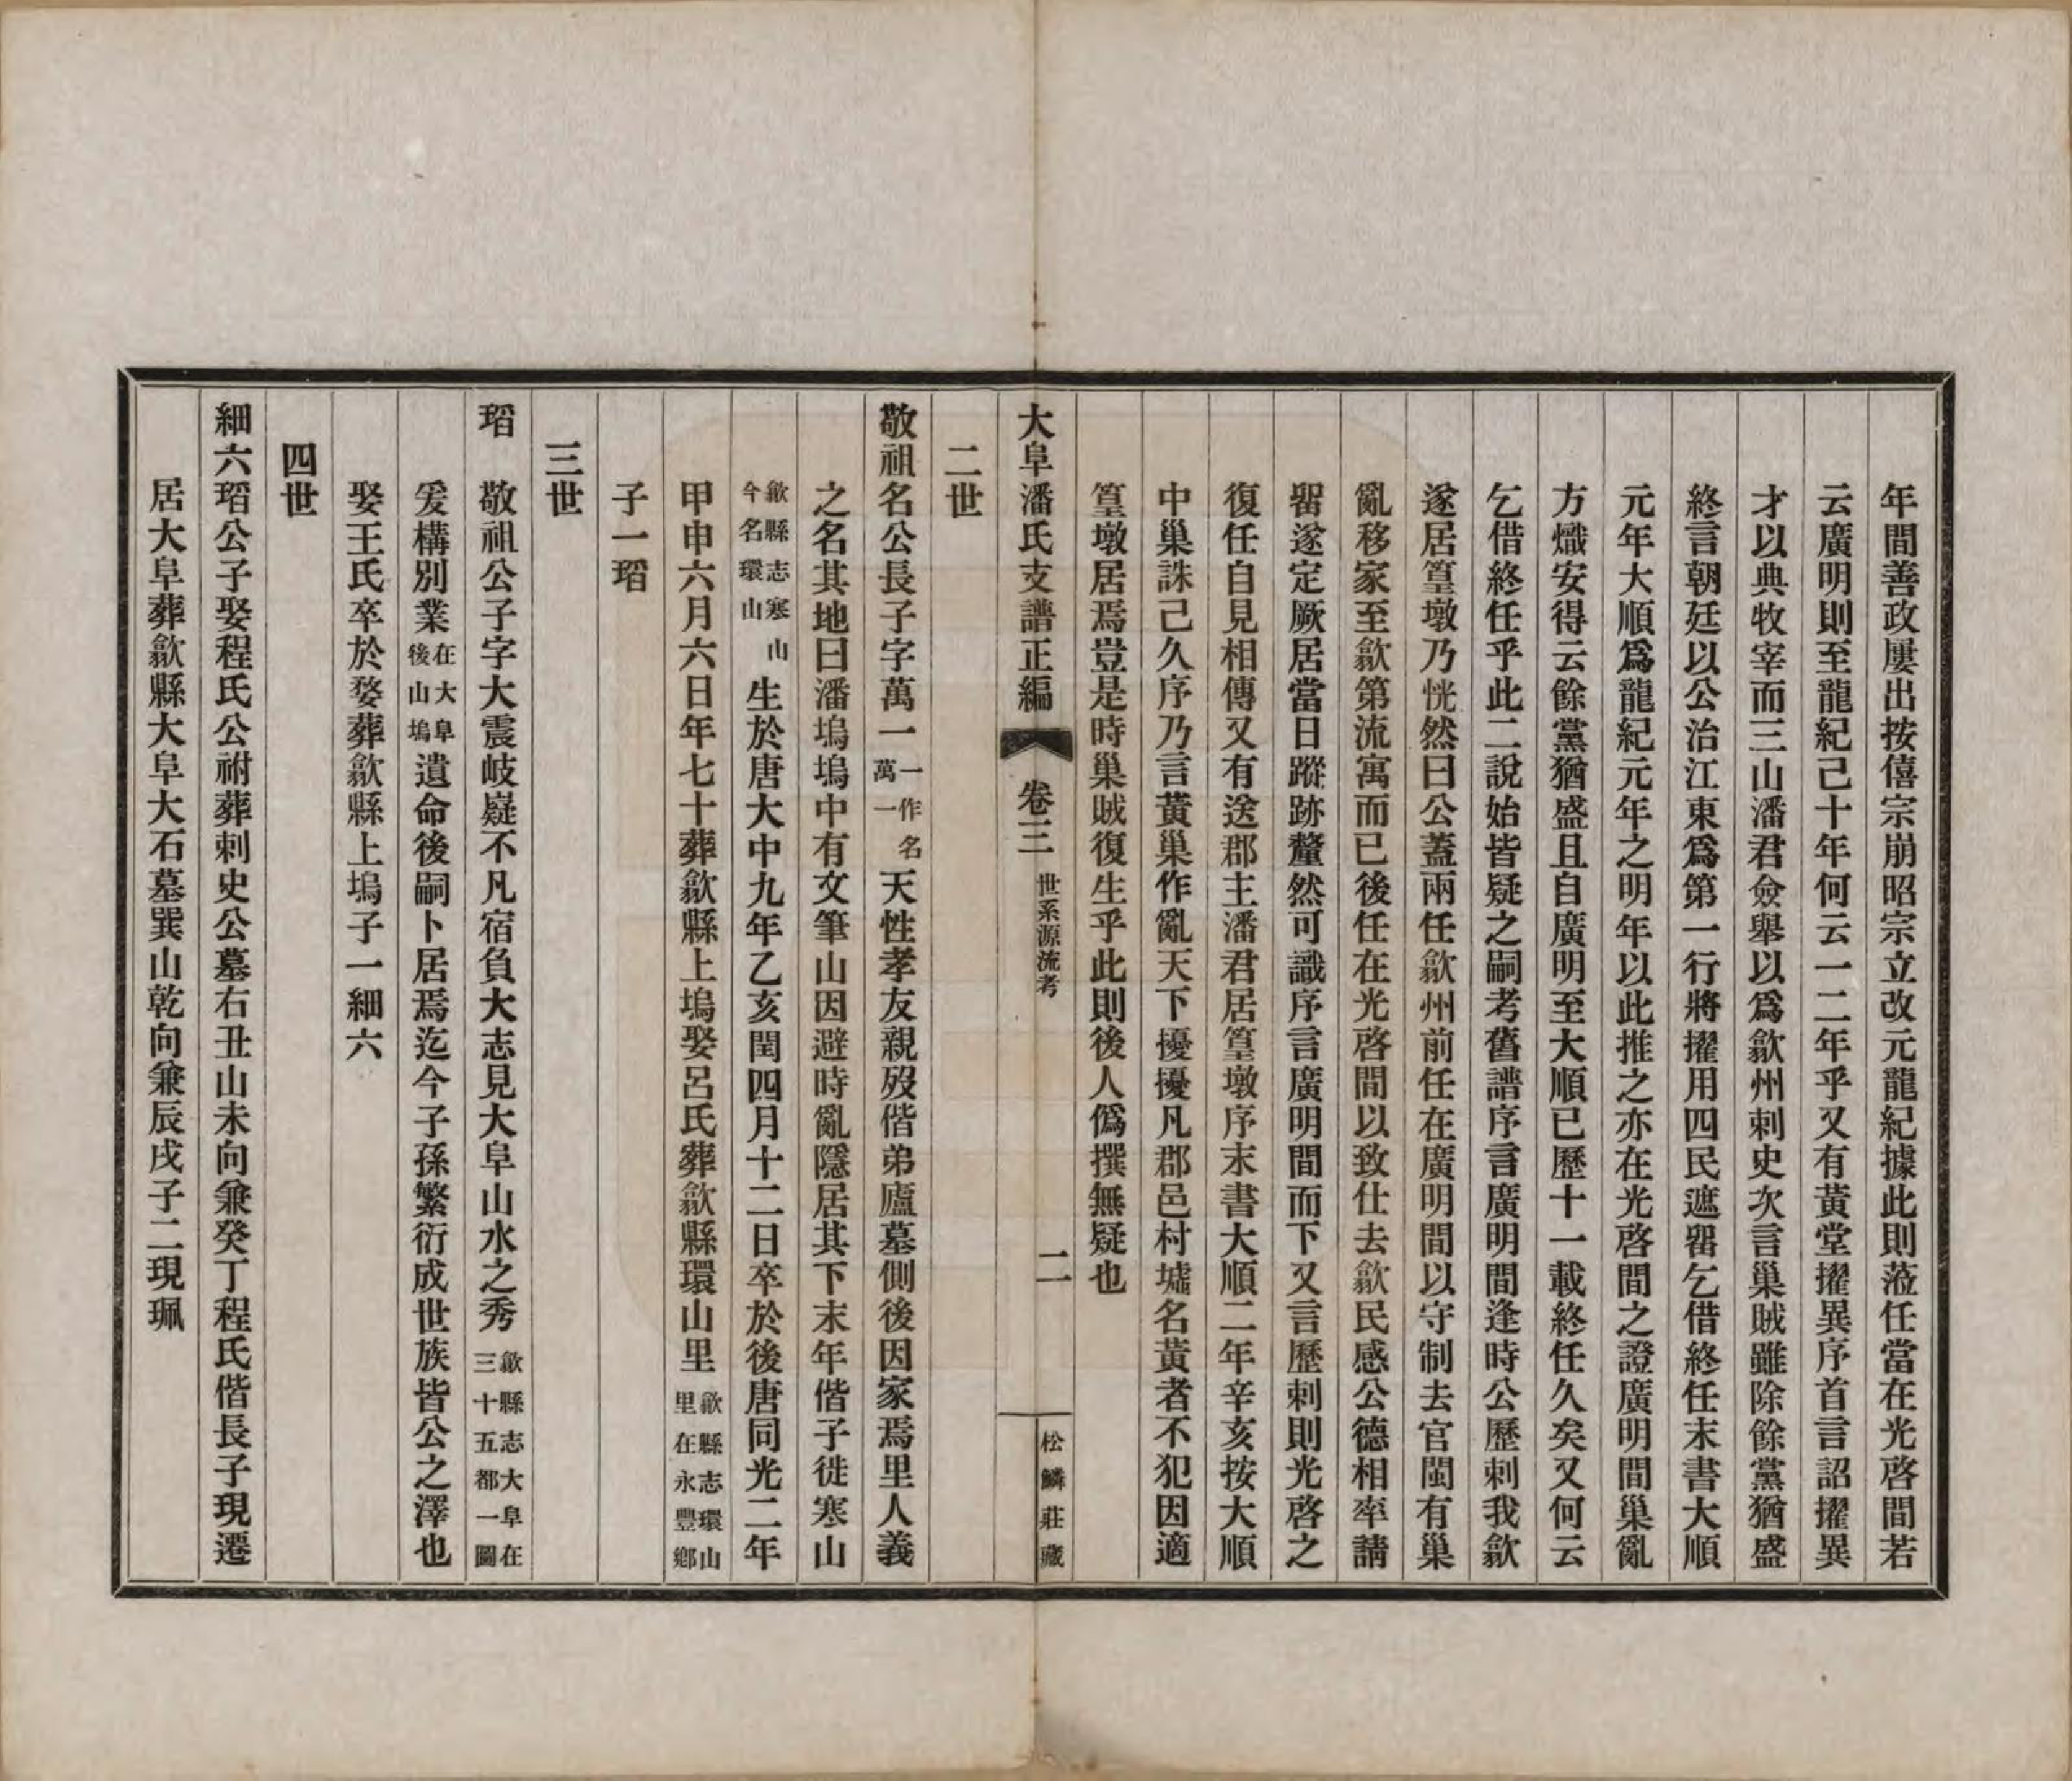 年間善政屢出按僖宗崩昭宗立改元龍紀據此則蒞任當在光啓間若
云廣明則至龍紀己十年何云一二年乎又有黃堂擢異序首言詔擢異
才以典牧宰而三山潘君僉舉以爲歙州刺史次言巢賊雖除餘黨猶盛
終言朝廷以公治江東爲第一行將擢用四民遮畱乞借終任末書大順
元年大順爲龍紀元年之明年以此推之亦在光啓間之證廣明間巢亂
方熾安得云餘黨猶盛且自廣明至大順已歷十一載終任久矣又何云
乞借終任乎此二說始皆疑之嗣考舊譜序言廣明間逢時公歷刺我歙
遂居篁墩乃恍然曰公蓋兩任歙州前任在廣明間以守制去官閩有巢
亂移家至歙第流寓而已後任在光啓間以致仕去歙民感公德相率請
畱遂定厥居當日蹤跡釐然可識序言廣明間而下又言歷刺則光啓之
復任自見相傳又有送郡主潘君居篁墩序末書大順二年辛亥按大順
中巢誅己久序乃言黃巢作亂天下擾擾凡郡邑村墟名黃者不犯因適
篁墩居焉豈是時巢賊復生乎此則後人僞撰無疑也
大阜潘氏支譜正編 卷三 世系源流考 二 松鱗莊藏
二世
敬祖名公長子字萬一 一作名萬一 天性孝友親歿偕弟廬墓側後因家焉里人義
之名其地曰潘塢塢中有文筆山因避時亂隱居其下末年偕子徙寒山
歙縣志寒山今名環山 生於唐大中九年乙亥閏四月十二日卒於後唐同光二年
甲申六月六日年七十葬歙縣上塢娶呂氏葬歙縣環山里 歙縣志環山里在永豐鄉
子一瑫
三世
瑫 敬祖公子字大震岐嶷不凡宿負大志見大阜山水之秀 歙縣志大阜在三十五都一圖
爰構別業 在大阜後山塢 遺命後嗣卜居焉迄今子孫繁衍成世族皆公之澤也
娶王氏卒於婺葬歙縣上塢子一細六
四世
細六瑫公子娶程氏公祔葬刺史公墓右丑山未向兼癸丁程氏偕長子現遷
居大阜葬歙縣大阜大石墓巽山乾向兼辰戌子二現珮